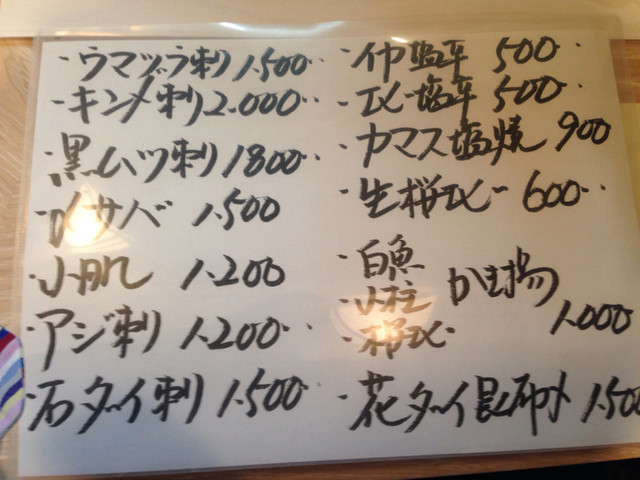 ・ウマヅラ刺 1.500
・キンメ刺 2.000
黒ムツ刺 1800
・〆サバ 1.500
・小肌 1.200
・アジ刺 1.200
・石ダイ刺 1.500
・イカ塩辛 500
・エビ塩辛 500
・カマス塩焼 900
・生桜エビ 600
・白魚
・小柱 かき揚
・桜エビ 1.000
・花ダイ昆布〆 1.500